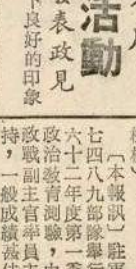 活動
發表政見
下良好的印象
〔本報訊〕駐
七四八九部隊舉
六十二年度第一季
政治教育測驗，
政戰副主官率員主
持，一般成績甚佳